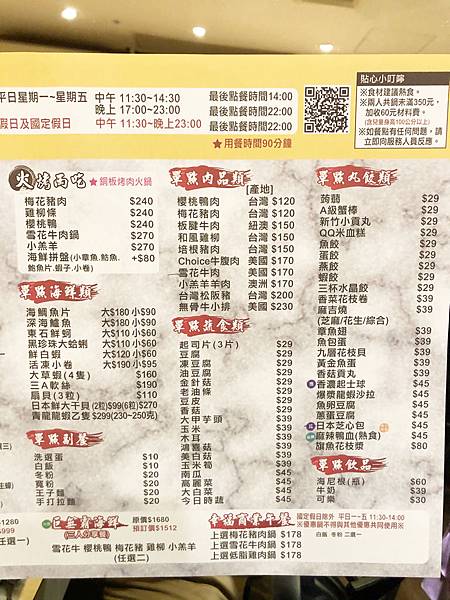 平日星期一~星期五
中午 11:30~14:30
晚上 17:00~23:00
最後點餐時間14:00
最後點餐時間22:00
假日及國定假日
中午 11:30~晚上23:00
最後點餐時間22:00
★用餐時間90分鐘
貼心小叮嚀
※食材建議熟食。
※兩人共鍋未滿350元,
加收60元材料費。
(含兒童身高100公分以上)
※如餐點有任何問題,請
立即向服務人員反應。
火烤兩吃
★銅板烤肉火鍋
梅花豬肉 $240
雞柳條 $240
櫻桃鴨 $240
雪花牛肉鍋 $270
小羔羊 $270
海鮮拼盤(小章魚.魴魚. +$80
鮑魚片.蝦子.小卷)
單點海鮮類
海鱺魚片 大$180 小$90
深海鱸魚 大$180 小$90
東石鮮蚵 大$110 小$60
黑珍珠大蛤蜊 大$110 小$60
鮮白蝦 大$120 小$60
活凍小卷 大$190 小$95
大草蝦(4隻) $160
三A軟絲 $190
扇貝(3粒) $110
日本鮮大干貝(2粒)$99(6粒)$270
青龍龍蝦乙隻 $299(230~250克)
單點副餐
洗選蛋 $10
白飯 $10
冬粉 $20
寬粉 $20
王子麵 $20
手打拉麵 $20
單點肉品類
[產地]
櫻桃鴨肉 台灣 $120
梅花豬肉 台灣 $120
板腱牛肉 紐澳 $150
和風雞柳 台灣 $150
培根豬肉 台灣 $150
Choice牛腹肉 美國 $170
雪花牛肉 美國 $170
小羔羊羊肉 澳洲 $170
台灣松阪豬 台灣 $200
無骨牛小排 美國 $230
單點蔬食類
起司片(3片) $29
豆腐 $29
凍豆腐 $29
油豆腐 $29
金針菇 $29
老油條 $29
豆皮 $29
香菇 $29
大甲芋頭 $29
玉米 $29
木耳 $29
鴻喜菇 $29
美白菇 $29
玉米筍 $29
南瓜 $29
高麗菜 $45
大白菜 $45
今日時蔬 $45
單點丸餃類
蒟蒻 $29
A級蟹棒 $29
新竹小貢丸 $29
QQ米血糕 $29
魚餃 $29
蛋餃 $29
燕餃 $29
蝦餃 $29
三杯水晶餃 $39
香菜花枝卷 $39
麻吉燒 $39
(芝麻/花生/綜合)
章魚翅 $39
魚包蛋 $39
九層花枝貝 $39
黃金魚蛋 $39
香菇貢丸 $39
香濃起士球 $45
爆漿龍蝦沙拉 $45
魚卵豆腐 $45
蔥蛋豆腐 $45
日本芝心包 $45
麻辣鴨血(熟食) $45
旗魚花枝漿 $80
單點飲品
海尼根(瓶) $60
牛奶 $39
可樂 $30
(三人分享餐)
原價$1680
預訂價$1512
雪花牛 櫻桃鴨 梅花豬 雞柳 小羔羊
(任選二)
幸福商業午餐
國定假日除外 平日一~五 11:30-14:00
※優惠鍋不得與其他優惠共同使用※
上選梅花豬肉鍋 $178
上選雪花牛肉鍋 $178
上選低脂雞肉鍋 $178
白飯 冬粉 二選一
$1280
$999
任選一)